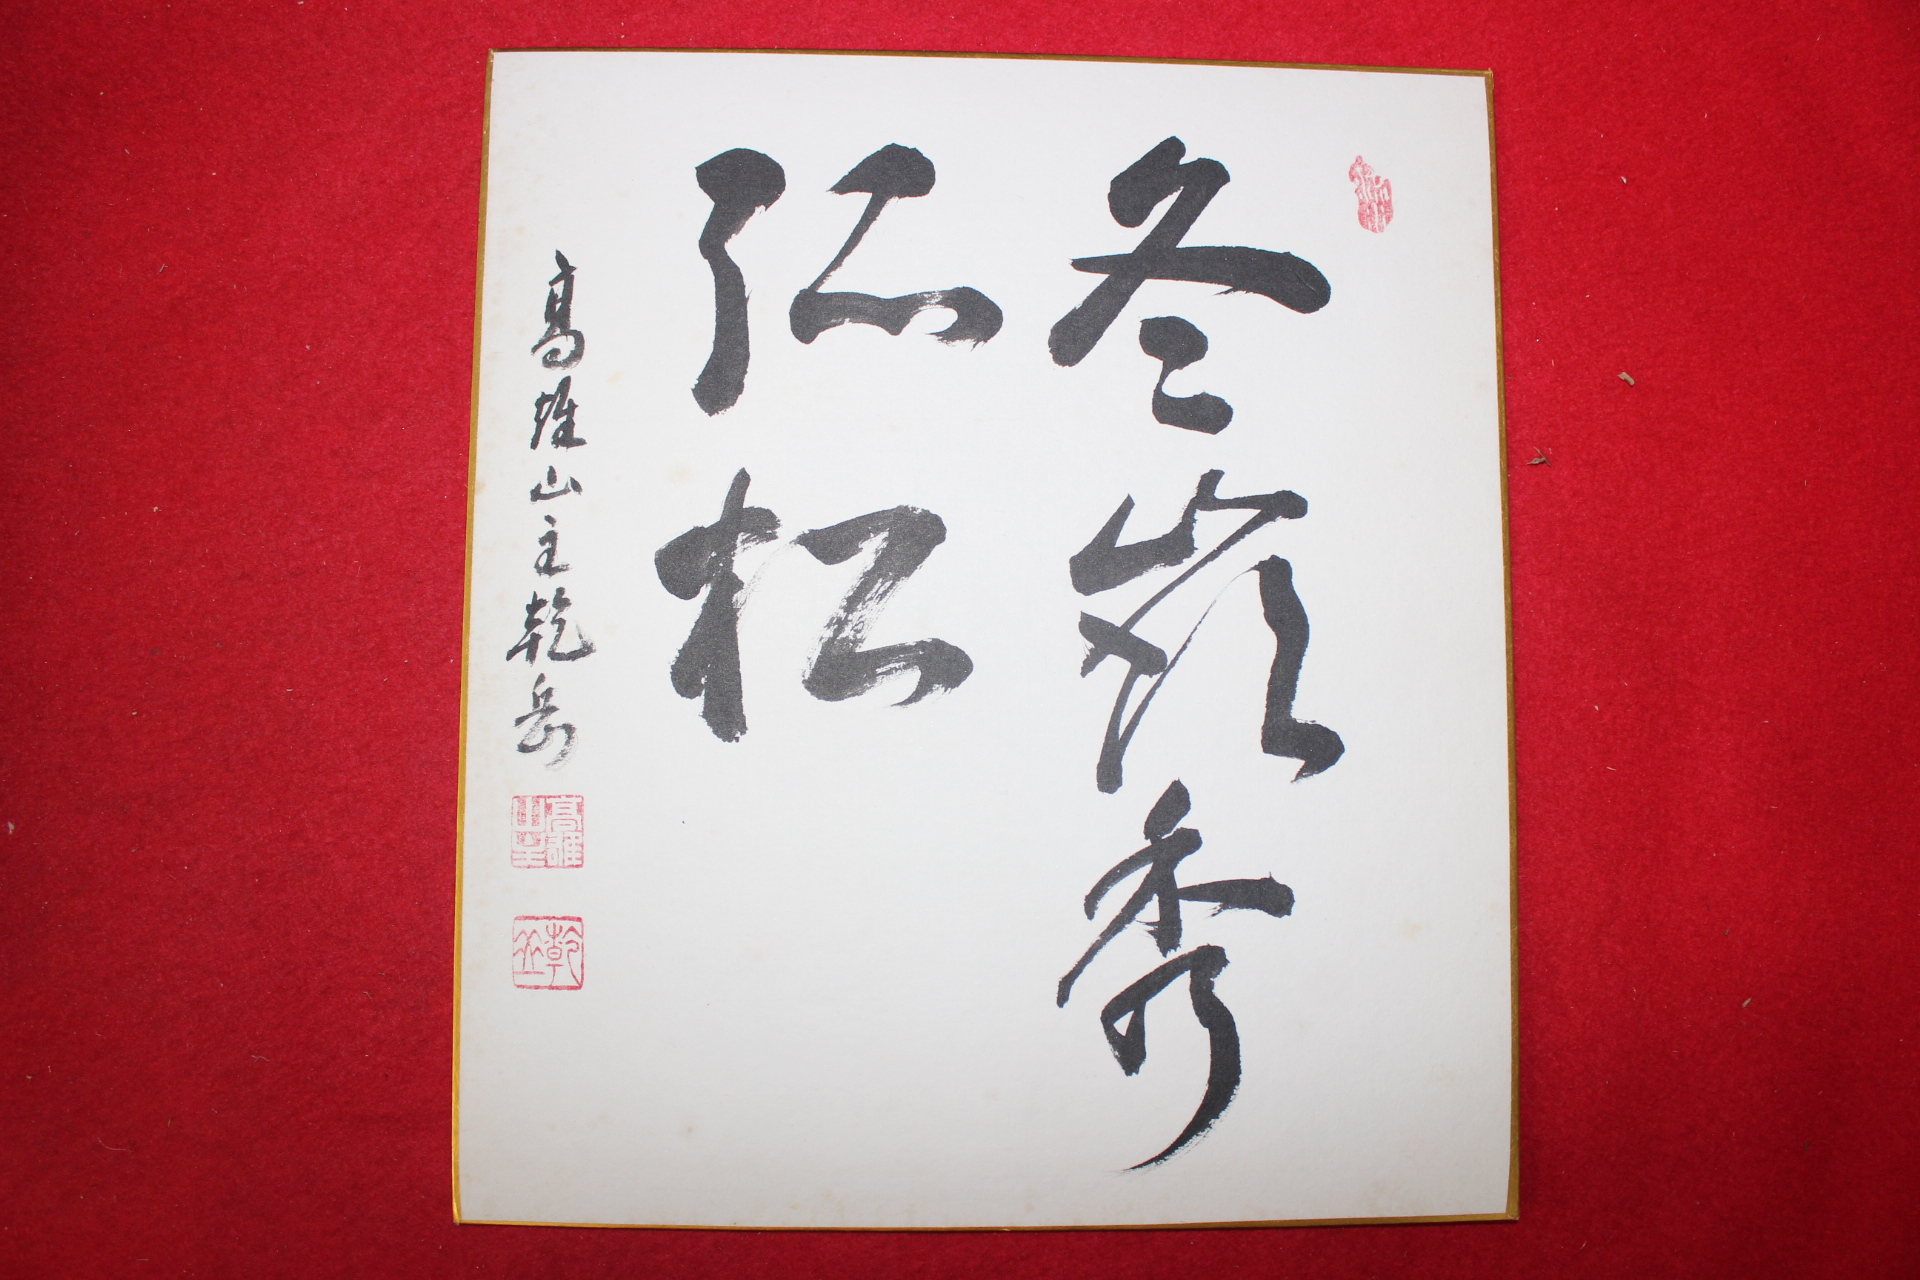 冬嶺秀
孤松
高雄山主乾岳
高雄山主